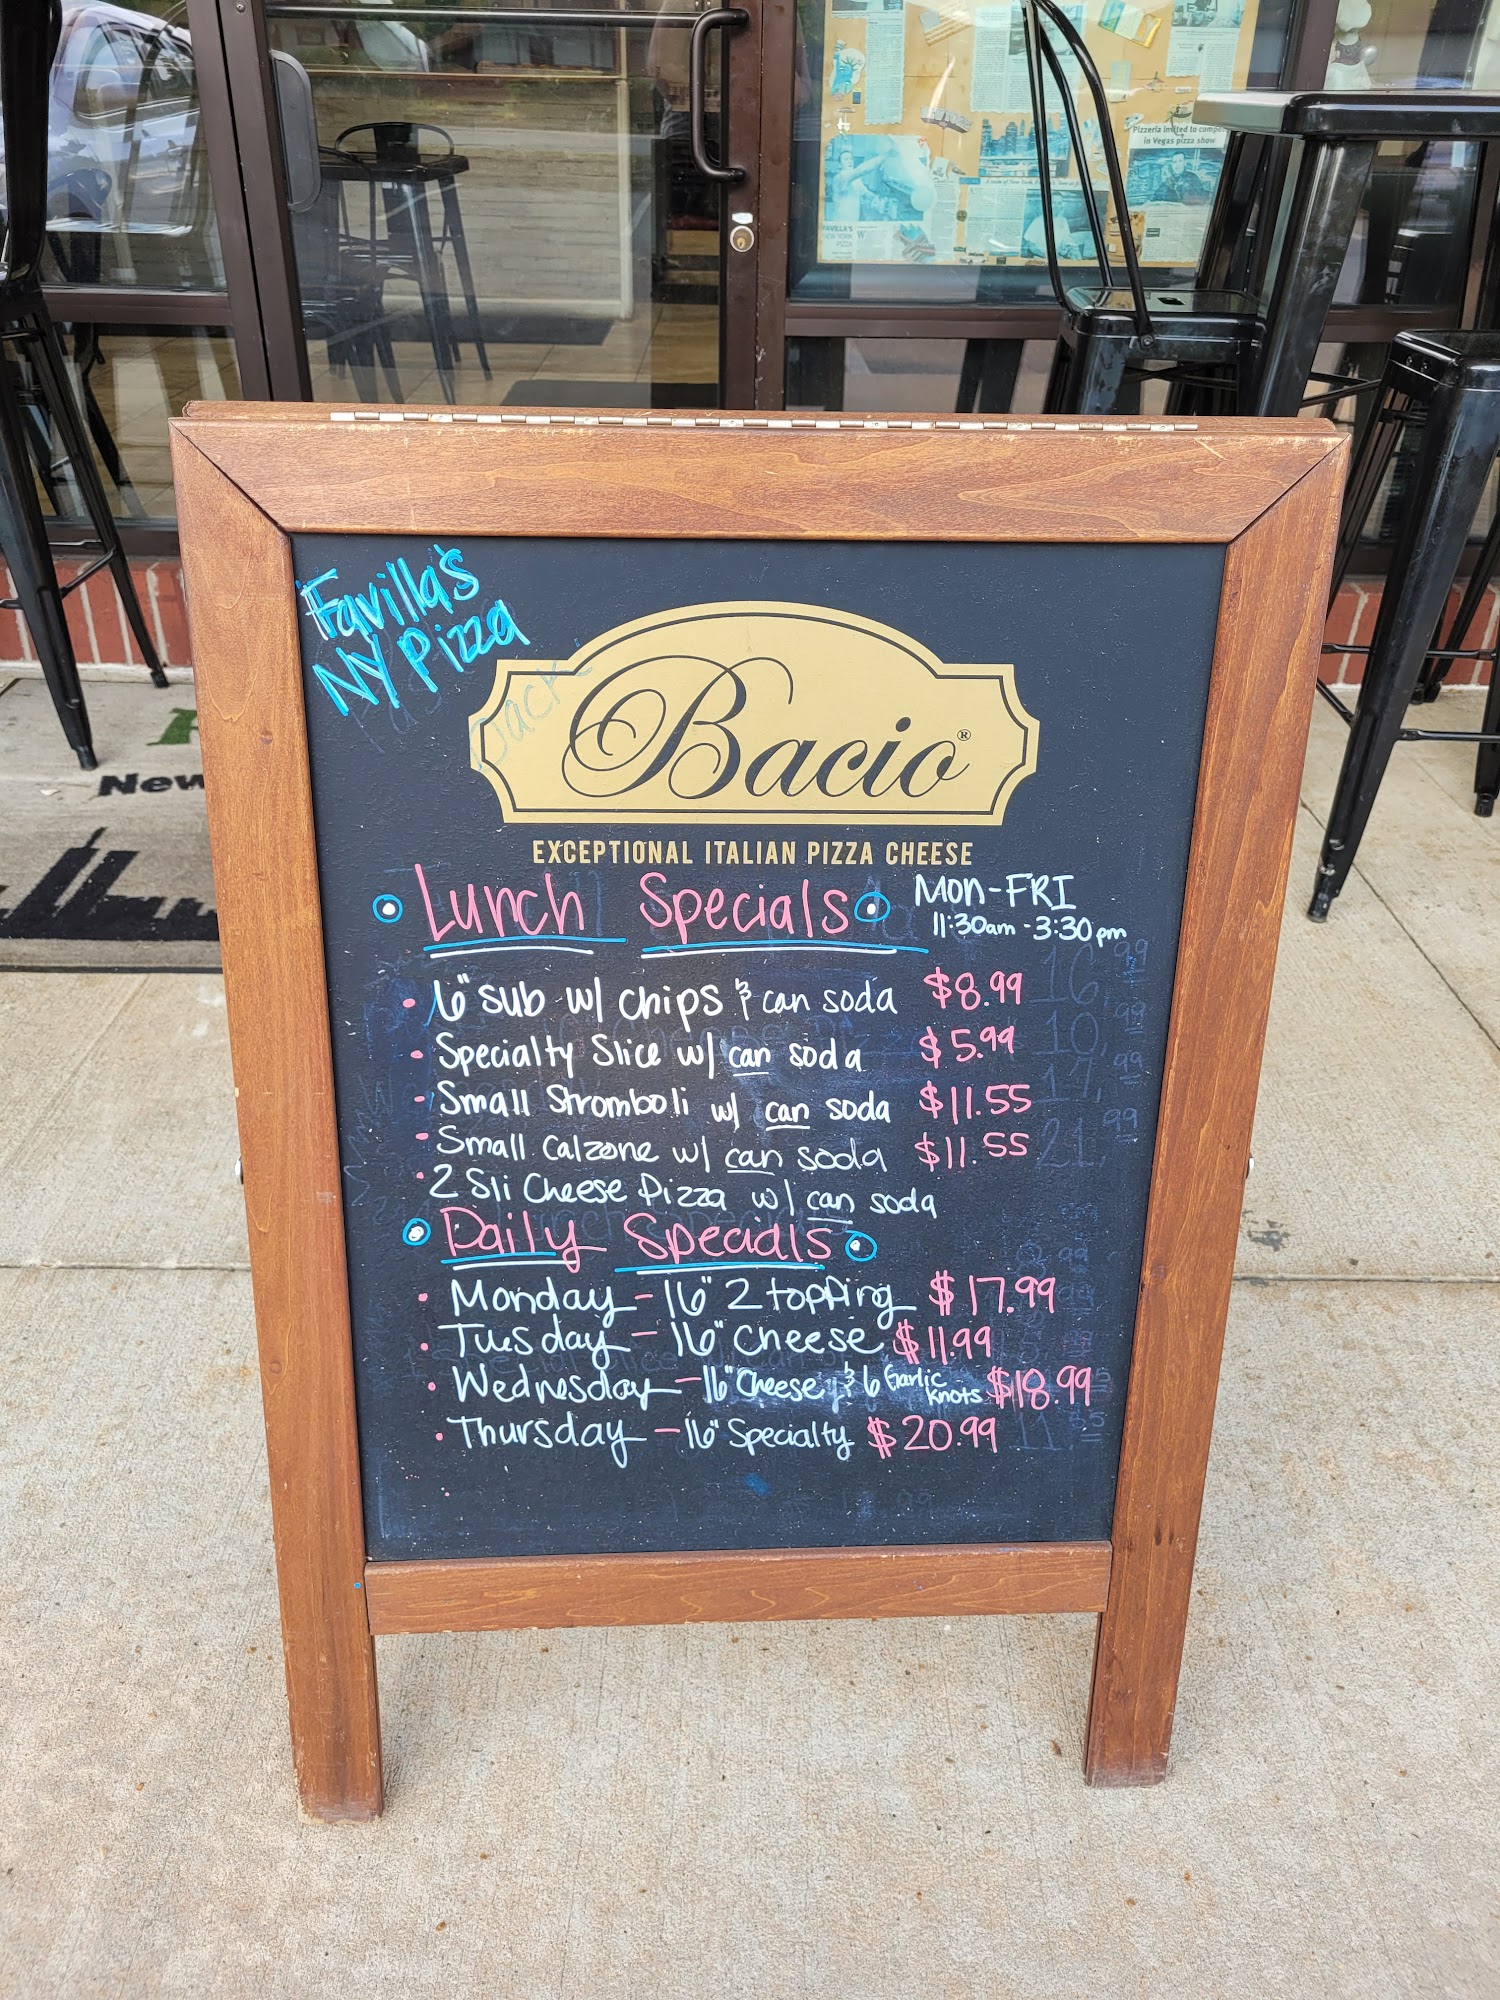 Pizzeria invited to compe
in Vegas pizza show
AVILLA'S
NEW YORK
PIZZA
New
Favilla's
NY Pizza
Bacio®
EXCEPTIONAL ITALIAN PIZZA CHEESE
Lunch Specials MON-FRI
11:30am - 3:30pm
• 6" sub w/ chips & can soda $8.99
• Specialty Slice w/ can soda $5.99
• Small Stromboli w/ can soda $11.55
• Small Calzone w/ can soda $11.55
• 2 Sli Cheese Pizza w/ can soda
Daily Specials
• Monday - 16" 2 topping $17.99
• Tuesday - 16" Cheese $11.99
• Wednesday - 16" Cheese & 6 Garlic Knots $18.99
• Thursday - 16" Specialty $20.99